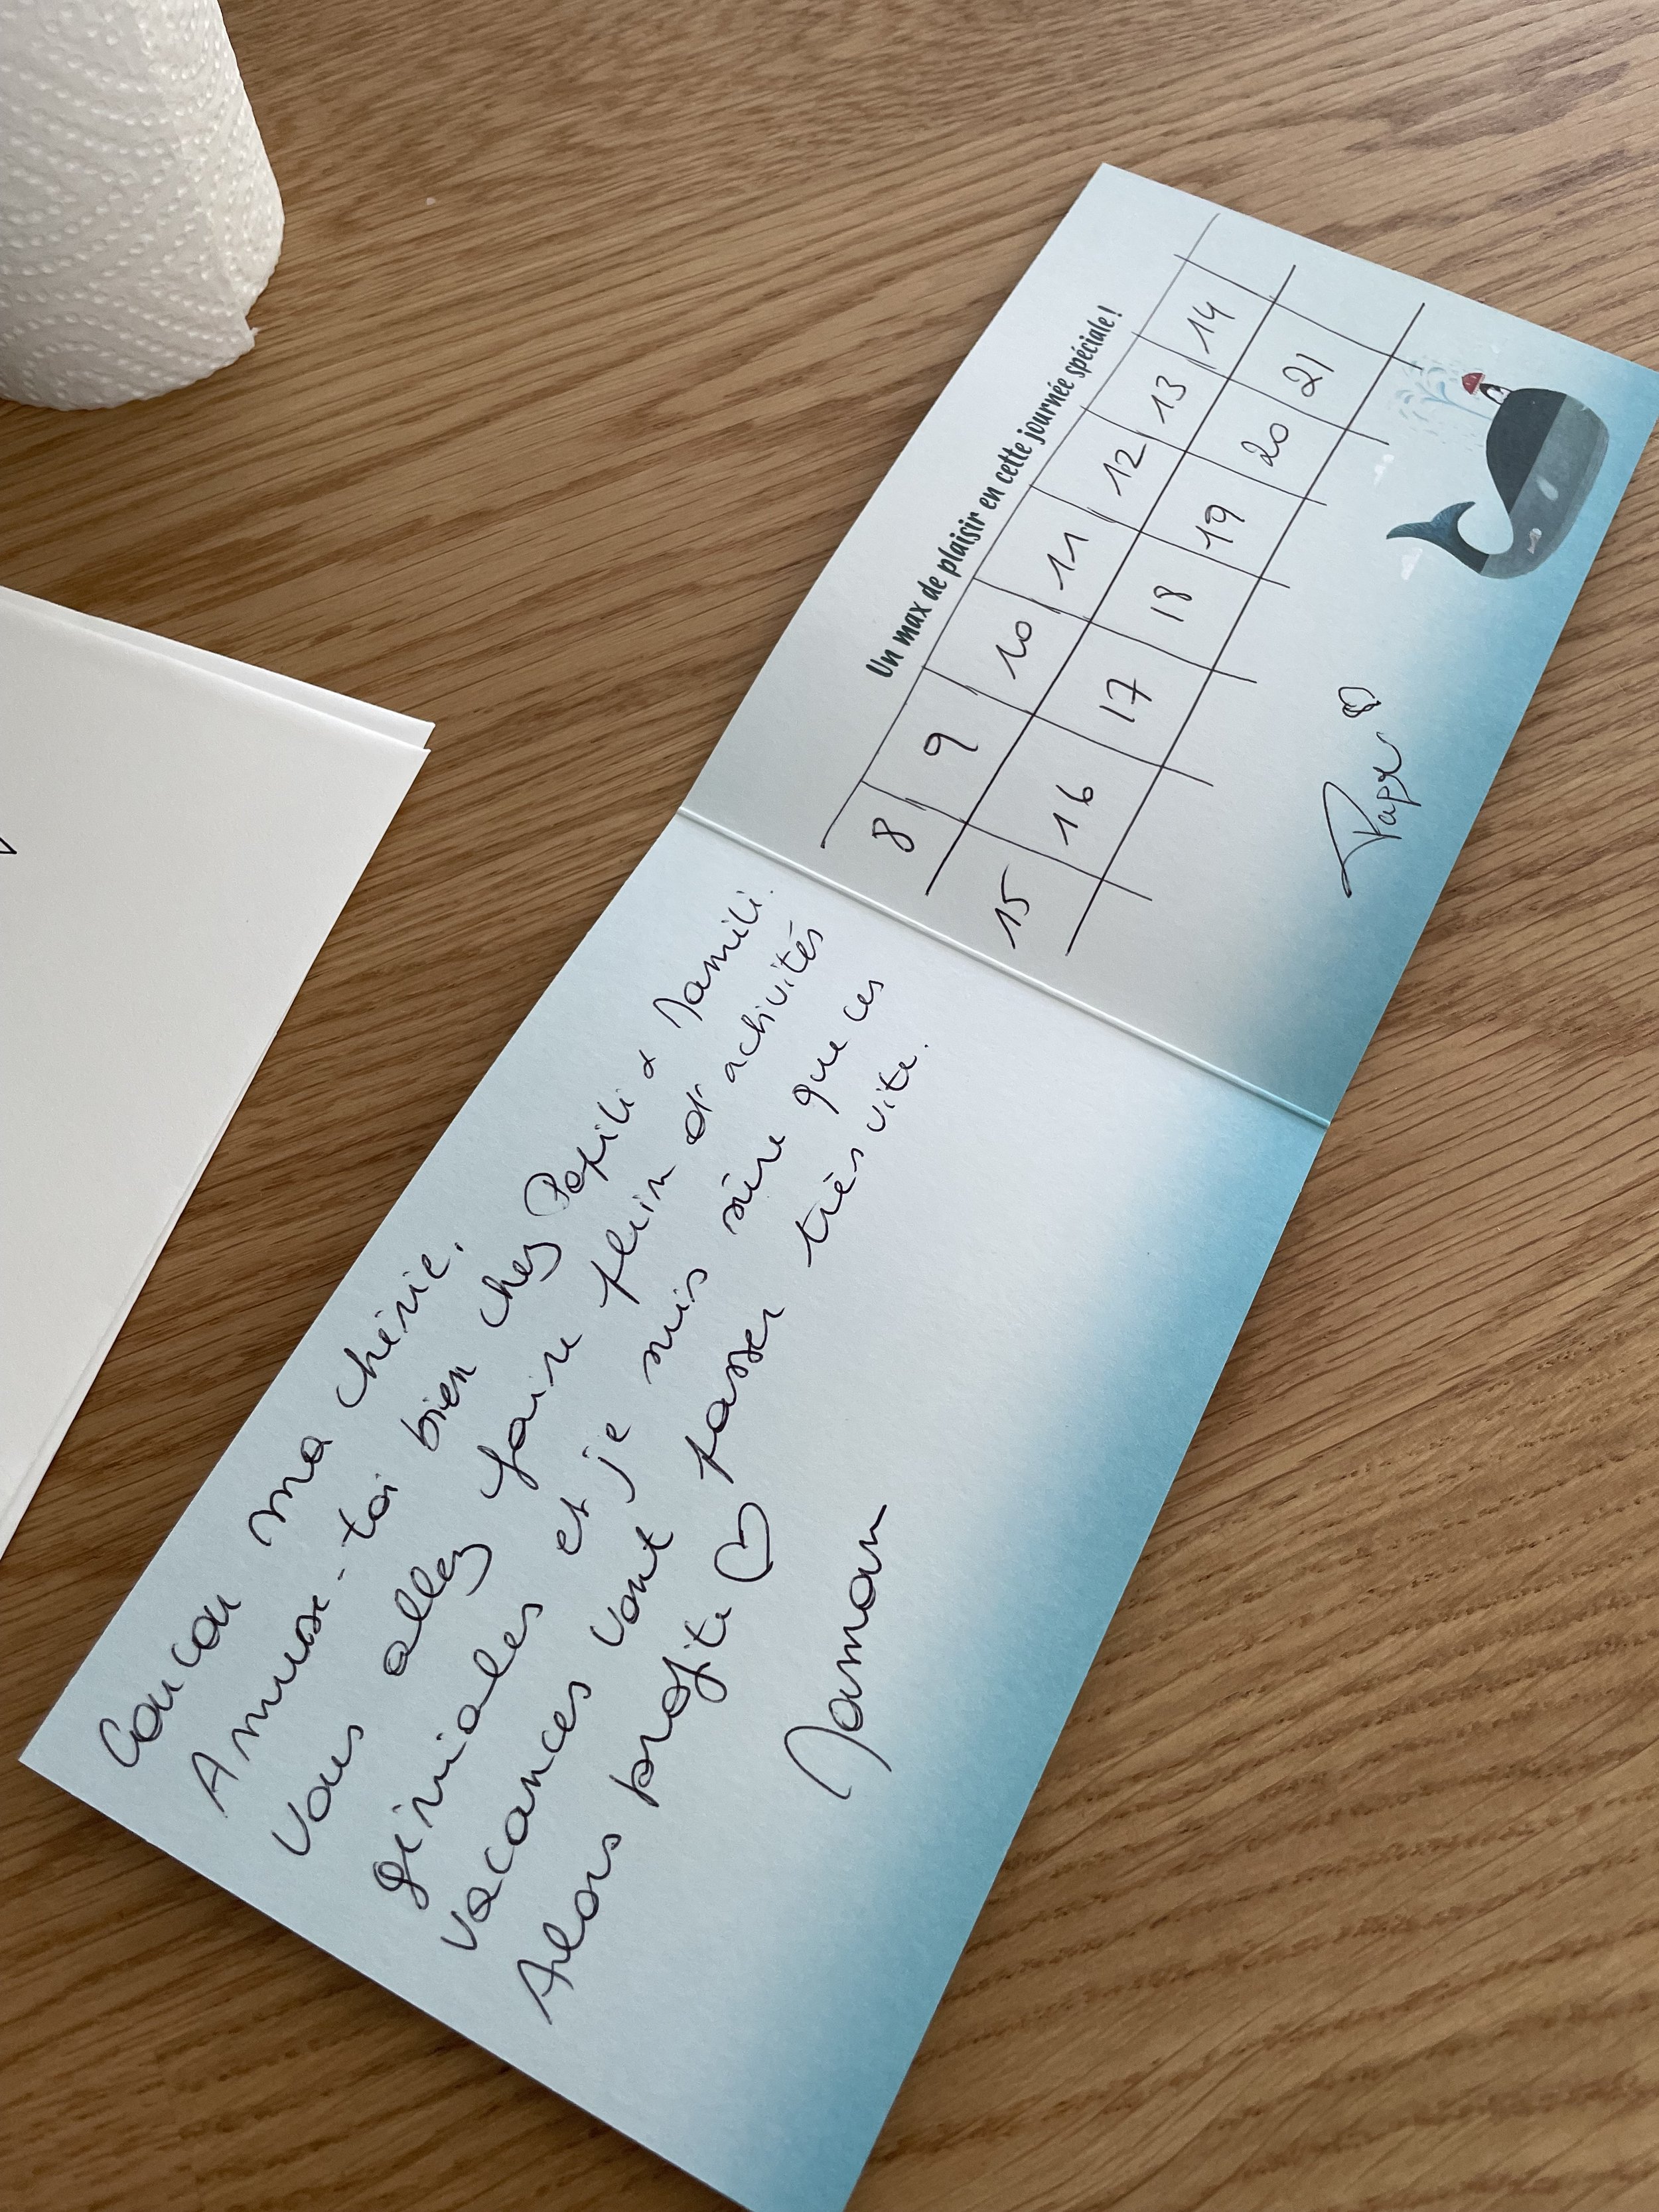 Coucou ma chérie,
Amuse-toi bien chez Papili & Mamili.
Vous allez faire plein d'activités
géniales et je suis sûre que ces
vacances vont passer très vite.
Alors profite ♡
Maman
Un max de plaisir en cette journée spéciale !
8 9 10 11 12 13 14
15 16 17 18 19 20 21
Papa